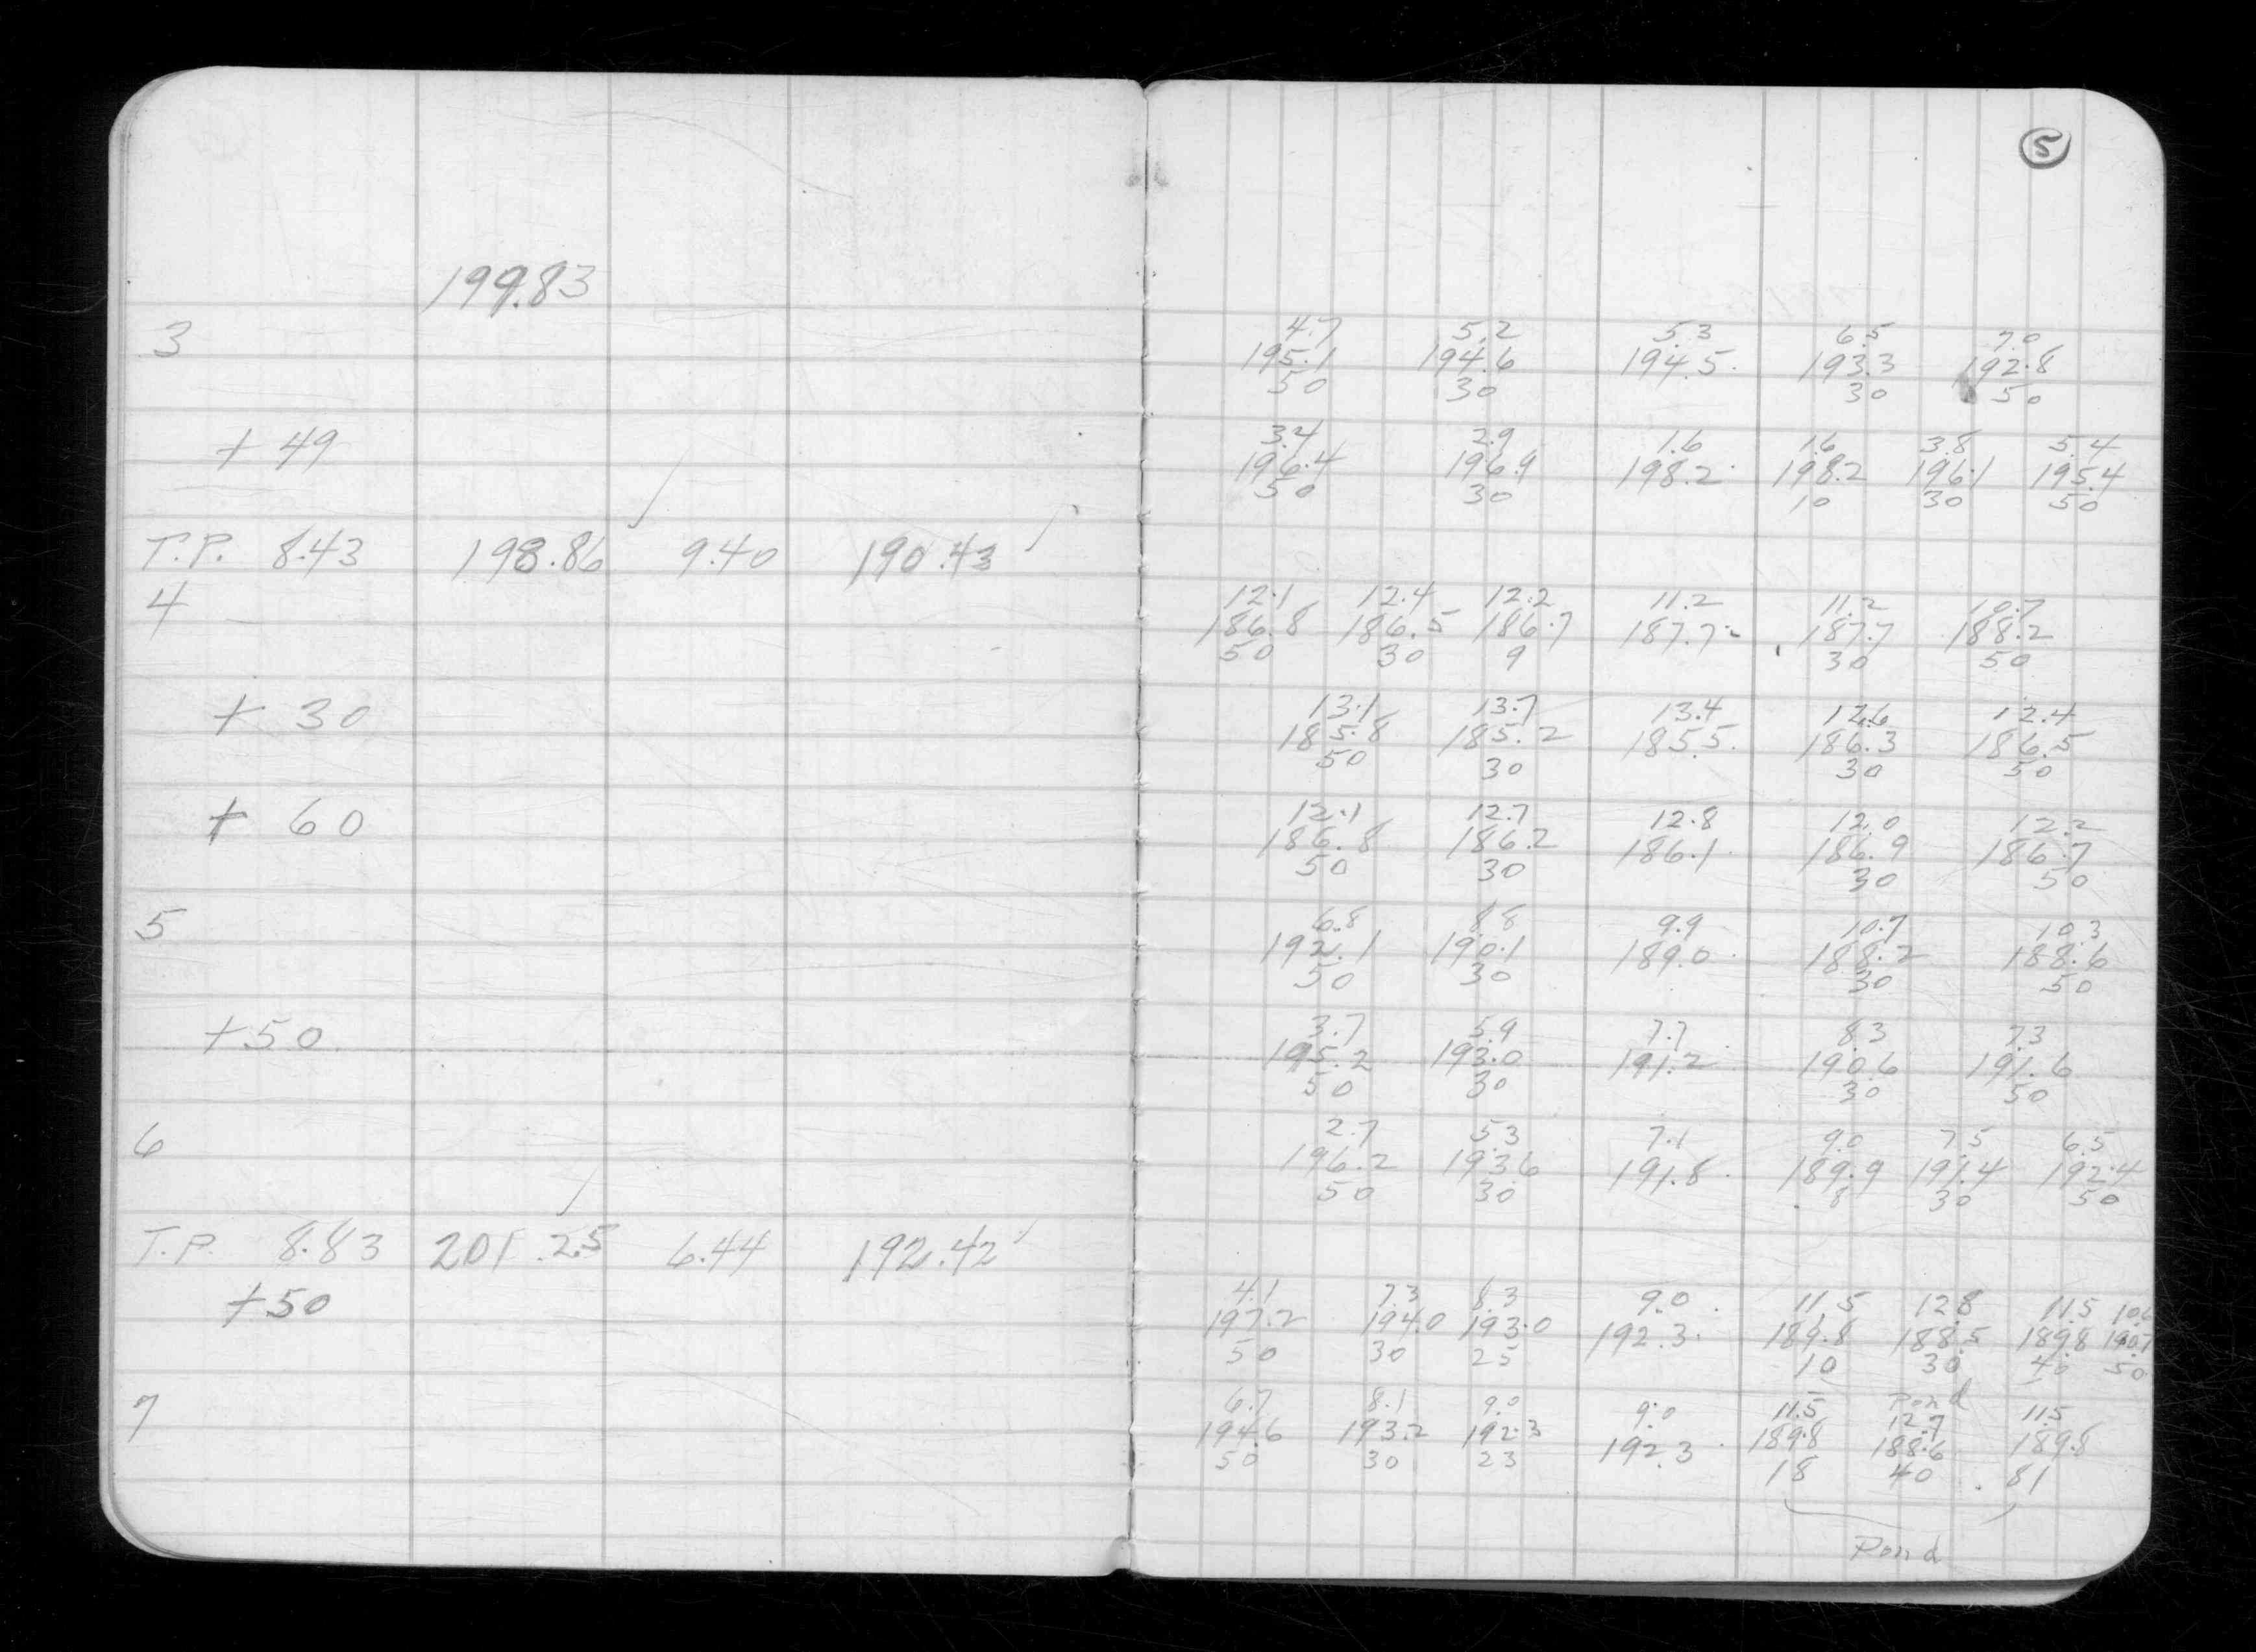 5
199.83
3
4.7 5.2 5.3 6.5 7.0
195.1 194.6 194.5 193.3 192.8
50 30 30 50
+ 49
3.4 2.9 1.6 1.6 3.8 5.4
196.4 196.9 198.2 198.2 196.1 195.4
50 30 10 30 50
T.P. 8.43 198.86 9.40 190.43
4
12.1 12.4 12.2 11.2 11.2 10.7
186.8 186.5 186.7 187.7 187.7 188.2
50 30 9 30 50
+ 30
13.1 13.7 13.4 12.6 12.4
185.8 185.2 185.5 186.3 186.5
50 30 30 50
+ 60
12.1 12.7 12.8 12.0 12.2
186.8 186.2 186.1 186.9 186.7
50 30 30 50
5
6.8 8.8 9.9 10.7 10.3
192.1 190.1 189.0 188.2 188.6
50 30 30 50
+50
3.7 5.9 7.7 8.3 7.3
195.2 193.0 191.2 190.6 191.6
50 30 30 50
6
2.7 5.3 7.1 9.0 7.5 6.5
196.2 193.6 191.8 189.9 191.4 192.4
50 30 8 30 50
T.P. 8.83 201.25 6.44 192.42
+50
4.1 7.3 8.3 9.0 11.5 12.8 11.5 10.6
197.2 194.0 193.0 192.3 189.8 188.5 189.8 190.7
50 30 25 10 30 40 50
Pond
7
6.7 8.1 9.0 9.0 11.5 12.7 11.5
194.6 193.2 192.3 192.3 189.8 188.6 189.8
50 30 23 18 40 81
Pond